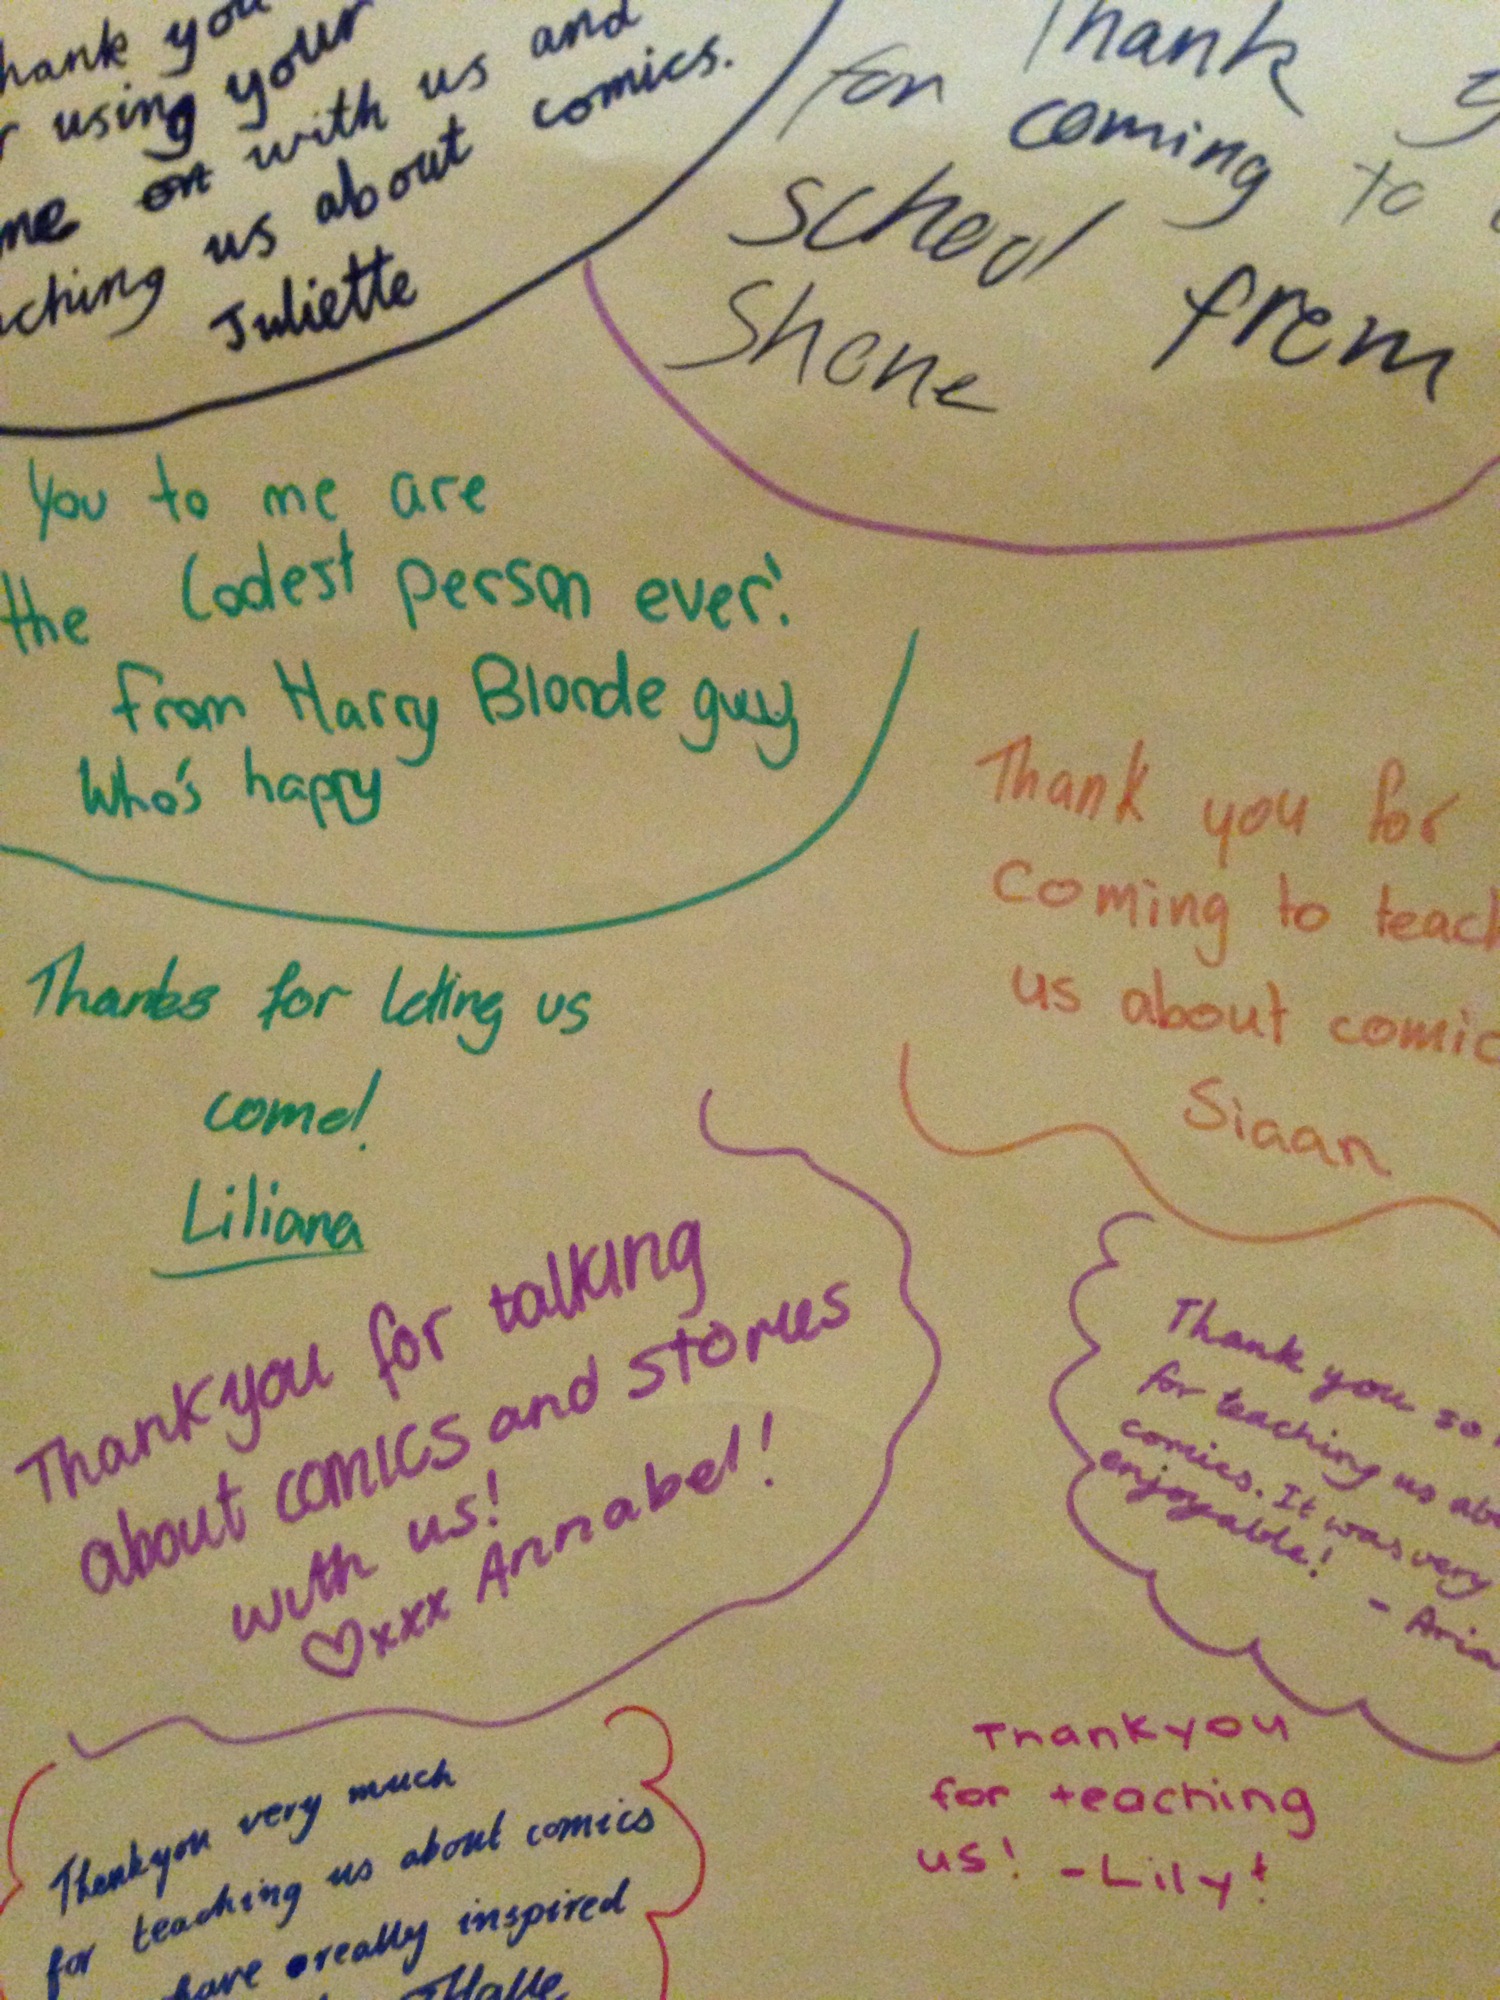 hank you
using your
me with us and
ching us about comics.
Juliette
Thank
for coming to
school from
Shane
You to me are
the Coolest person ever!
from Harry Blonde guy
Who's happy
Thank you for
Coming to teach
us about comic
Siaan
Thanks for letting us
come!
Liliana
Thankyou for talking
about comics and stories
with us!
♡xxx Annabel!
Thank you so
for teaching us abo
comics. It was very
enjoyable! - Aria
Thankyou
for teaching
us! - Lily!
Thankyou very much
for teaching us about comics
have really inspired